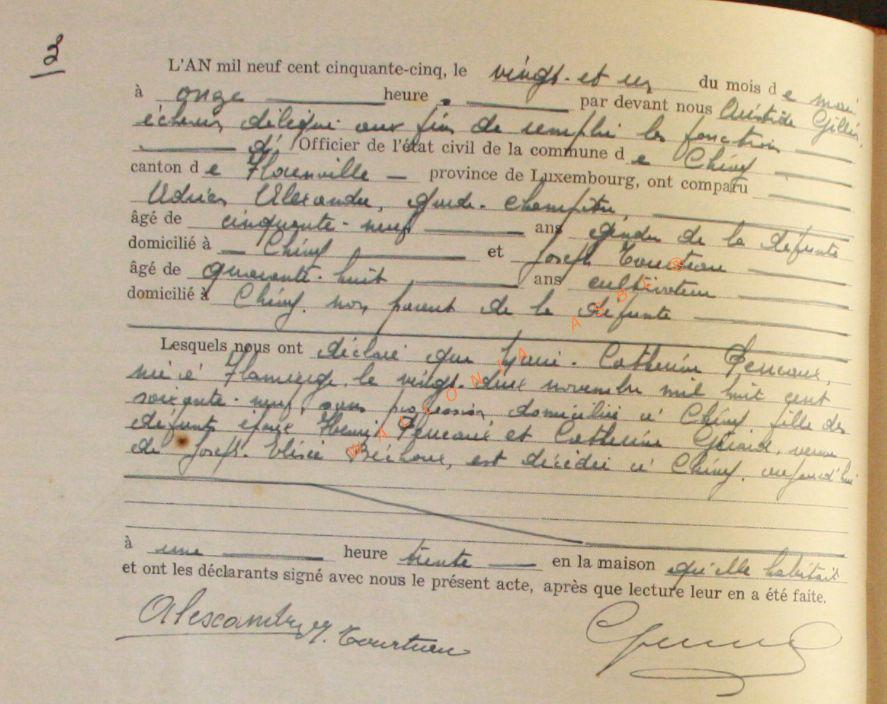 3
L'AN mil neuf cent cinquante-cinq, le vingt-et un du mois de mai
à onze heure s par devant nous Aristide Gillet,
échevin délégué aux fin de remplir les fonction
d' Officier de l'état civil de la commune de Chiny
canton de Florenville — province de Luxembourg, ont comparu
Adrien Alexandre, garde-champêtre,
âgé de cinquante-neuf ans gendre de la défunte
domicilié à Chiny et Joseph
âgé de quarante-huit ans cultivateur
domicilié à Chiny, non parent de la défunte
Lesquels nous ont déclaré que Marie-Catherine
née à Flamierge, le vingt-deux novembre mil huit cent
soixante-neuf, sans profession domiciliée à Chiny, fille des
défunts époux Henri et Catherine Gérard, veuve
de Joseph-Elisée est décédée à Chiny, aujourd'hui
à une heure trente en la maison qu'elle habitait
et ont les déclarants signé avec nous le présent acte, après que lecture leur en a été faite.
WALLONIA ASBL ©
Alexandre J. Tourteau